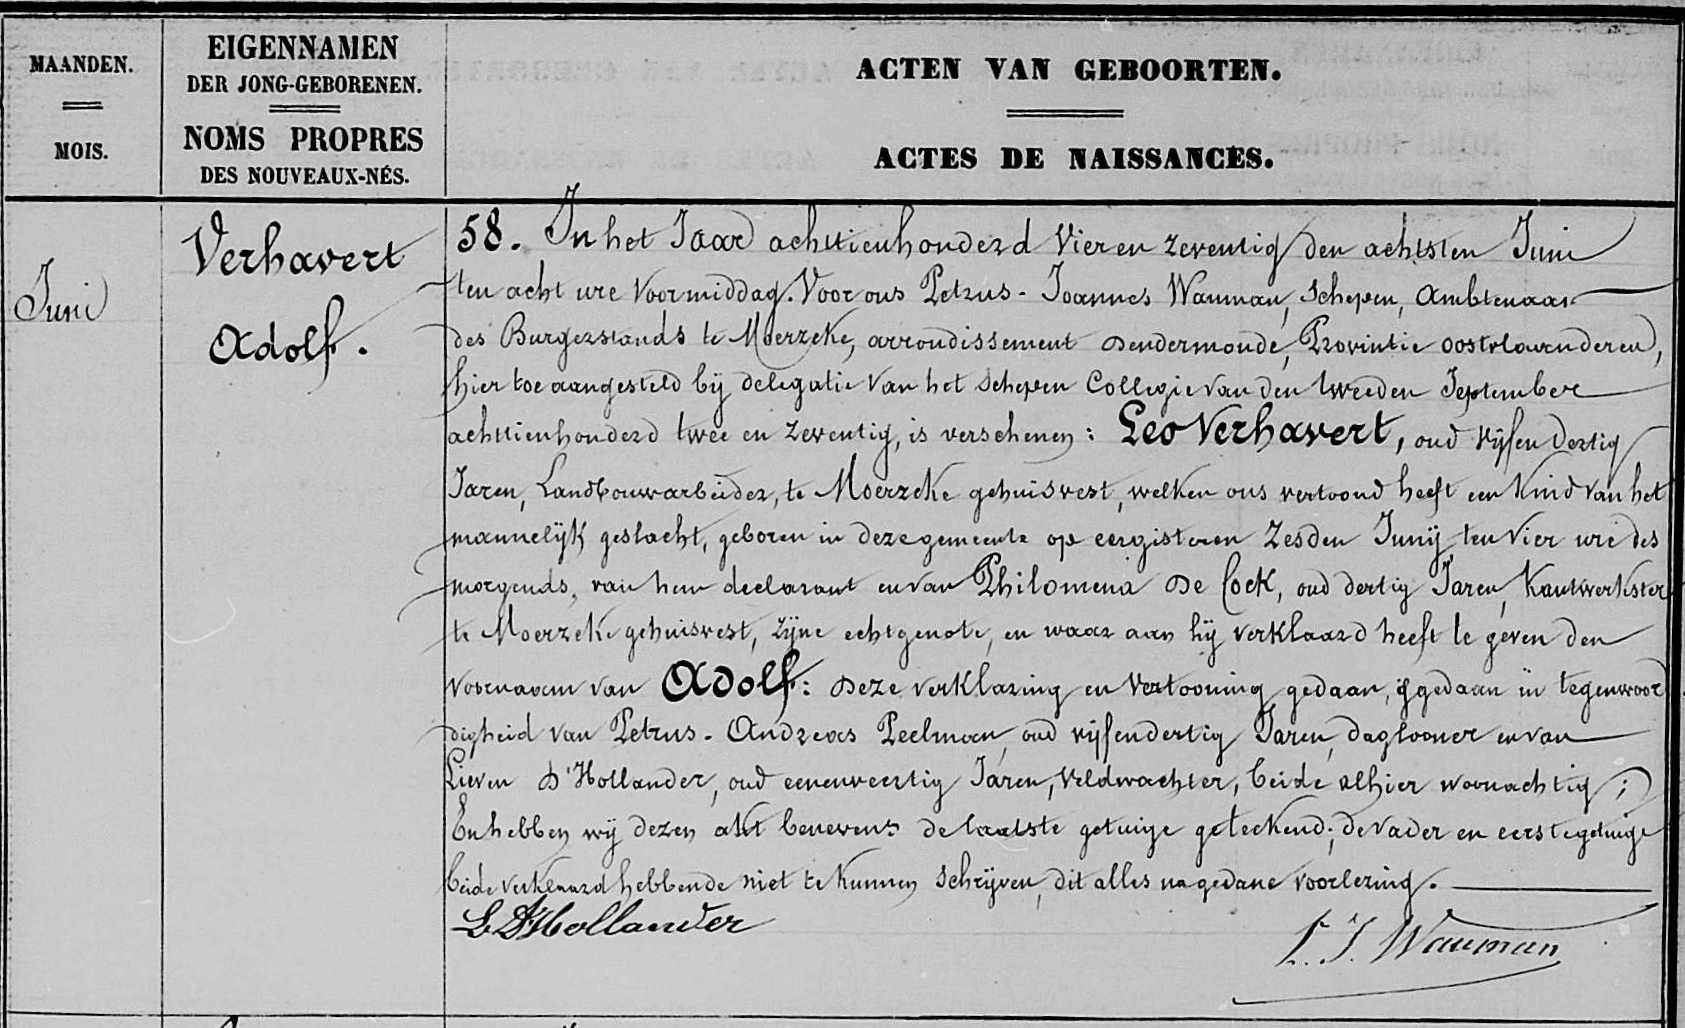 MAANDEN.
MOIS.
EIGENNAMEN
DER JONG-GEBORENEN.
NOMS PROPRES
DES NOUVEAUX-NÉS.
ACTEN VAN GEBOORTEN.
ACTES DE NAISSANCES.
Juni
Verhavert
Adolf.
58. In het Jaar achttienhonderd Vier en zeventig den achtsten Juni
ten acht ure Voormiddag. Voor ons Petrus-Joannes Wauman, Schepen, Ambtenaar
des Burgerstands te Moerzeke, arrondissement Dendermonde, Provintie oostvlaanderen,
hier toe aangesteld bij delegatie van het schepen Collegie van den tweeden September
achttienhonderd twee en zeventig, is verschenen: Leo Verhavert, oud vijfendertig
Jaren, Landbouwarbeider, te Moerzeke gehuisvest, welken ons vertoond heeft een kind van het
mannelijk geslacht, geboren in deze gemeente op eergisteren zesden Junij ten vier ure des
morgends, van hem declarant en van Philomena De Cock, oud dertig Jaren, Kantwerkster
te Moerzeke gehuisvest, zijne echtgenote, en waar aan hij verklaard heeft te geven den
voornaam van Adolf: Deze verklaring en vertooning gedaan, is gedaan in tegenwoor
digheid van Petrus-Andreas Peelman, oud vijfendertig Jaren, daglooner en van
Lieven D'Hollander, oud eenenveertig Jaren, Veldwachter, beide alhier woonachtig;
En hebben wij dezen akt benevens de laatste getuige geteekend; de vader en eerste getuige
beide verklaard hebbende niet te kunnen schrijven, dit alles na gedane voorlezing.
L D'Hollander
P. J. Wauman